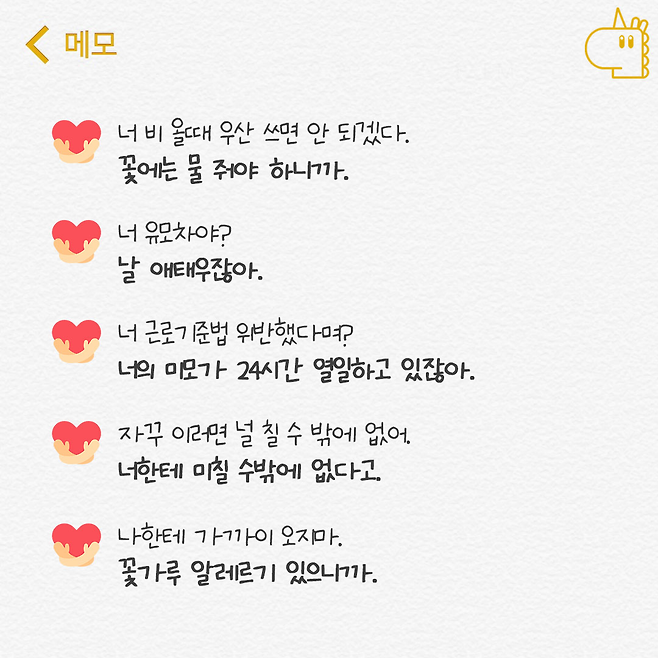 메모
너 비 올때 우산 쓰면 안 되겠다.
꽃에는 물 줘야 하니까.
너 유모차야?
날 애태우잖아.
너 근로기준법 위반했다며?
너의 미모가 24시간 열일하고 있잖아.
자꾸 이러면 널 칠 수 밖에 없어.
너한테 미칠 수밖에 없다고.
나한테 가까이 오지마.
꽃가루 알레르기 있으니까.